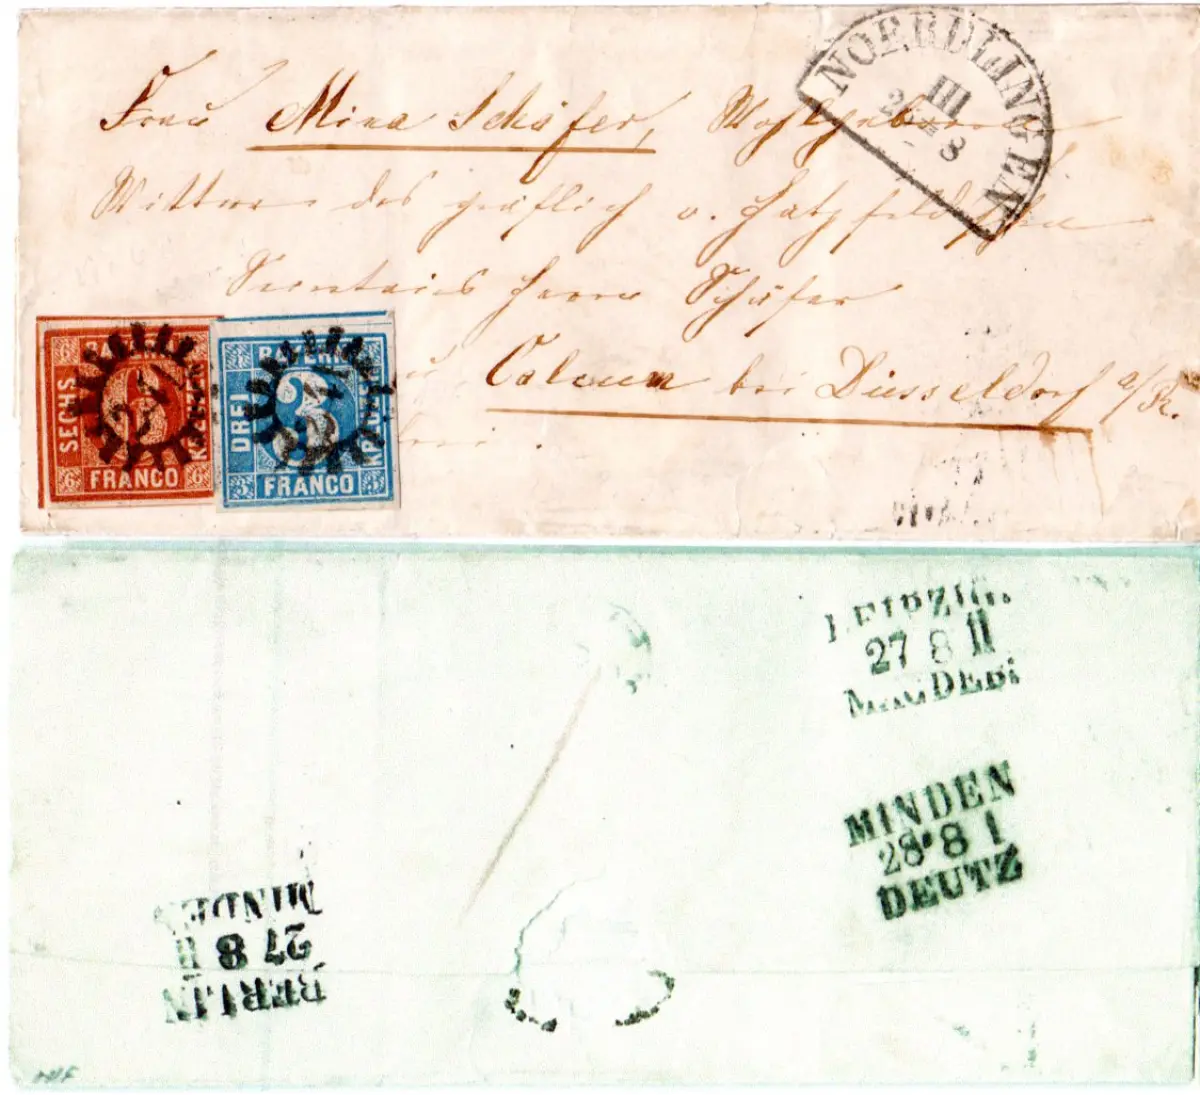 Frau Mina Schäfer, Wohlgeboren
Wittwe des gräflich v. Hatzfeld'schen
Secretairs Herrn Schäfer
Calcum bei Düsseldorf a/R.
frei.
NOERDLINGEN
III
8
6 BAYERN
SECHS
KREUZER
6
6 FRANCO 6
BAYERN
DREI
KREUZER
3
3 FRANCO 3
LEIPZIG.
27 8 II
MAGDEB:
MINDEN
28 8 I
DEUTZ
BERLIN
27 8 II
MINDEN